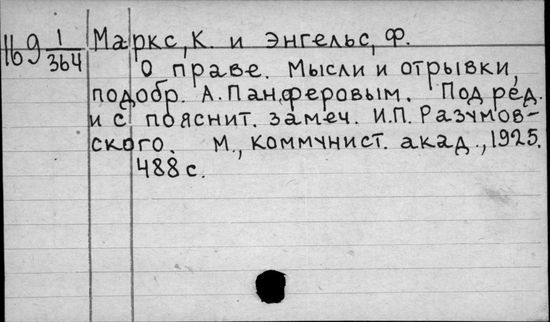 Маркс, К. и Энгельс, Ф.
116 9 1/364
О праве. Мысли и отрывки,
подобр. А. Панферовым. Под ред.
и с пояснит. замеч. И.П. Разумов-
ского. М., Коммунист. акад., 1925.
488 с.